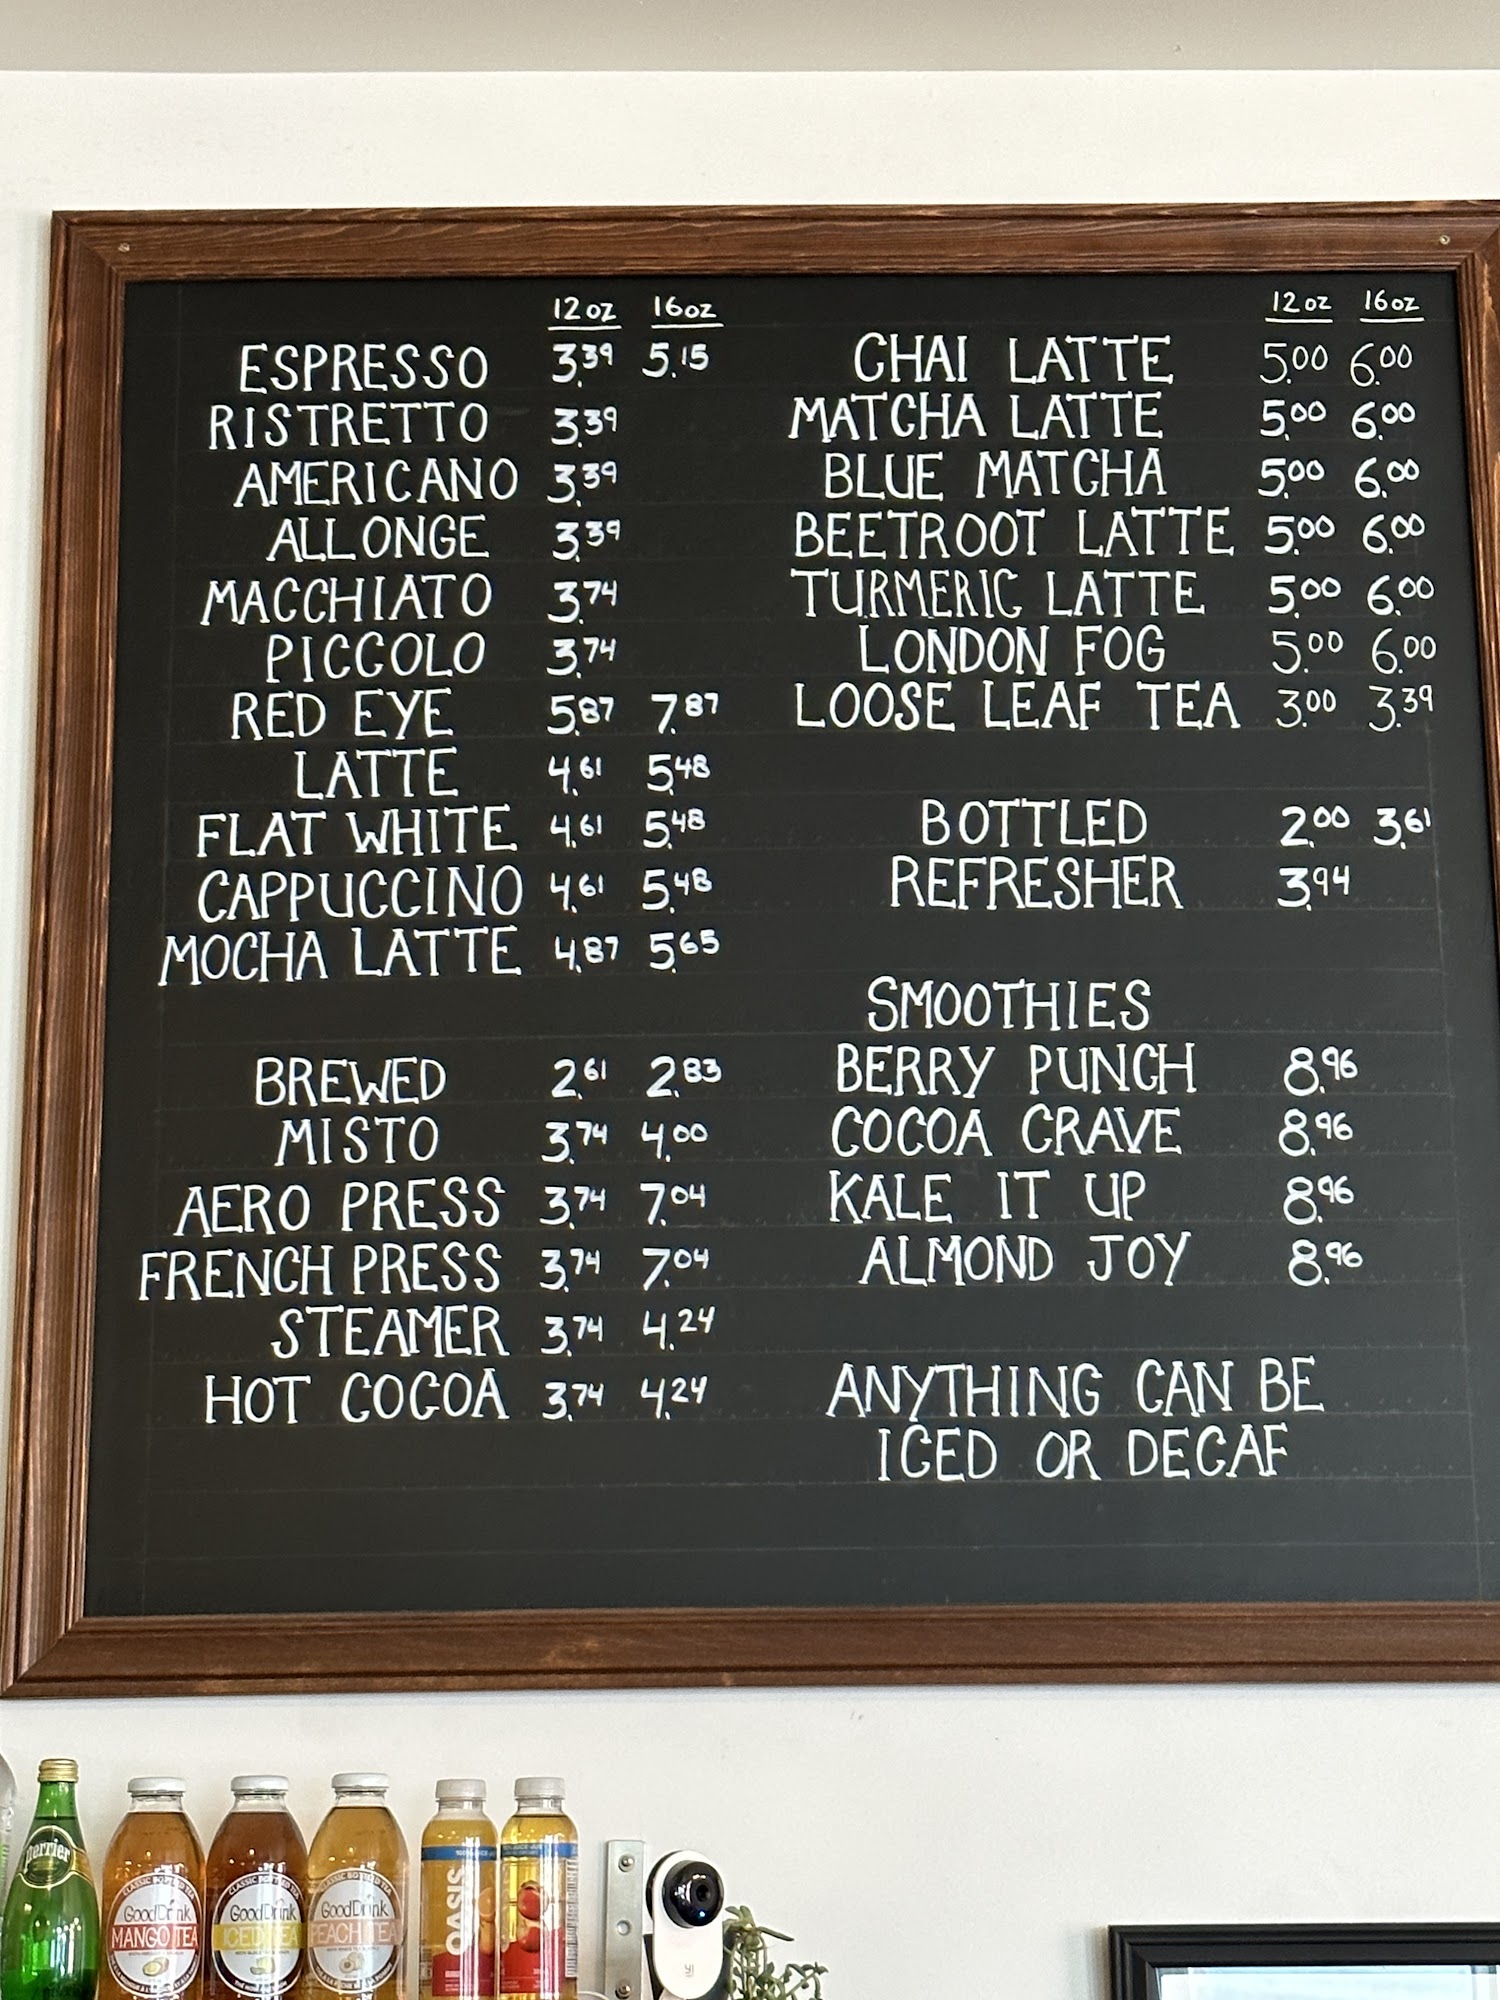 12 oz 16 oz
ESPRESSO 3.39 5.15
RISTRETTO 3.39
AMERICANO 3.39
ALLONGE 3.39
MACCHIATO 3.74
PICCOLO 3.74
RED EYE 5.87 7.87
LATTE 4.61 5.48
FLAT WHITE 4.61 5.48
CAPPUCCINO 4.61 5.48
MOCHA LATTE 4.87 5.65
BREWED 2.61 2.83
MISTO 3.74 4.00
AERO PRESS 3.74 7.04
FRENCH PRESS 3.74 7.04
STEAMER 3.74 4.24
HOT COCOA 3.74 4.24
12 oz 16 oz
CHAI LATTE 5.00 6.00
MATCHA LATTE 5.00 6.00
BLUE MATCHA 5.00 6.00
BEETROOT LATTE 5.00 6.00
TURMERIC LATTE 5.00 6.00
LONDON FOG 5.00 6.00
LOOSE LEAF TEA 3.00 3.39
BOTTLED 2.00 3.61
REFRESHER 3.94
SMOOTHIES
BERRY PUNCH 8.96
COCOA CRAVE 8.96
KALE IT UP 8.96
ALMOND JOY 8.96
ANYTHING CAN BE
ICED OR DECAF
perrier
CLASSIC BOTTLED TEA
GoodDrink
MANGO TEA
CLASSIC BOTTLED TEA
GoodDrink
ICED TEA
CLASSIC BOTTLED TEA
GoodDrink
PEACH TEA
OASIS
YI